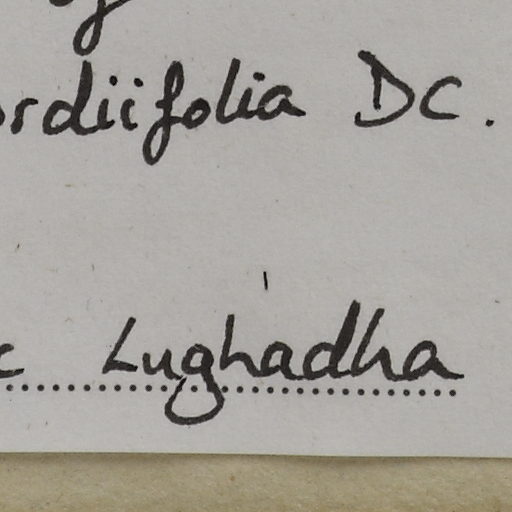 ordiifolia DC.
c Lughadha